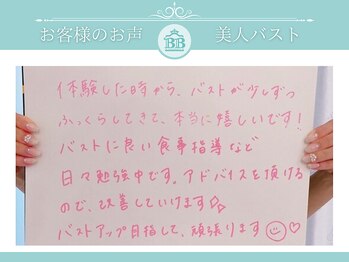 お客様のお声
BB
美人バスト
体験した時から、バストが少しずつ
ふっくらしてきて、本当に嬉しいです!
バストに良い食事指導など
日々勉強中です。アドバイスを頂ける
ので、改善していけます
バストアップ目指して、頑張ります